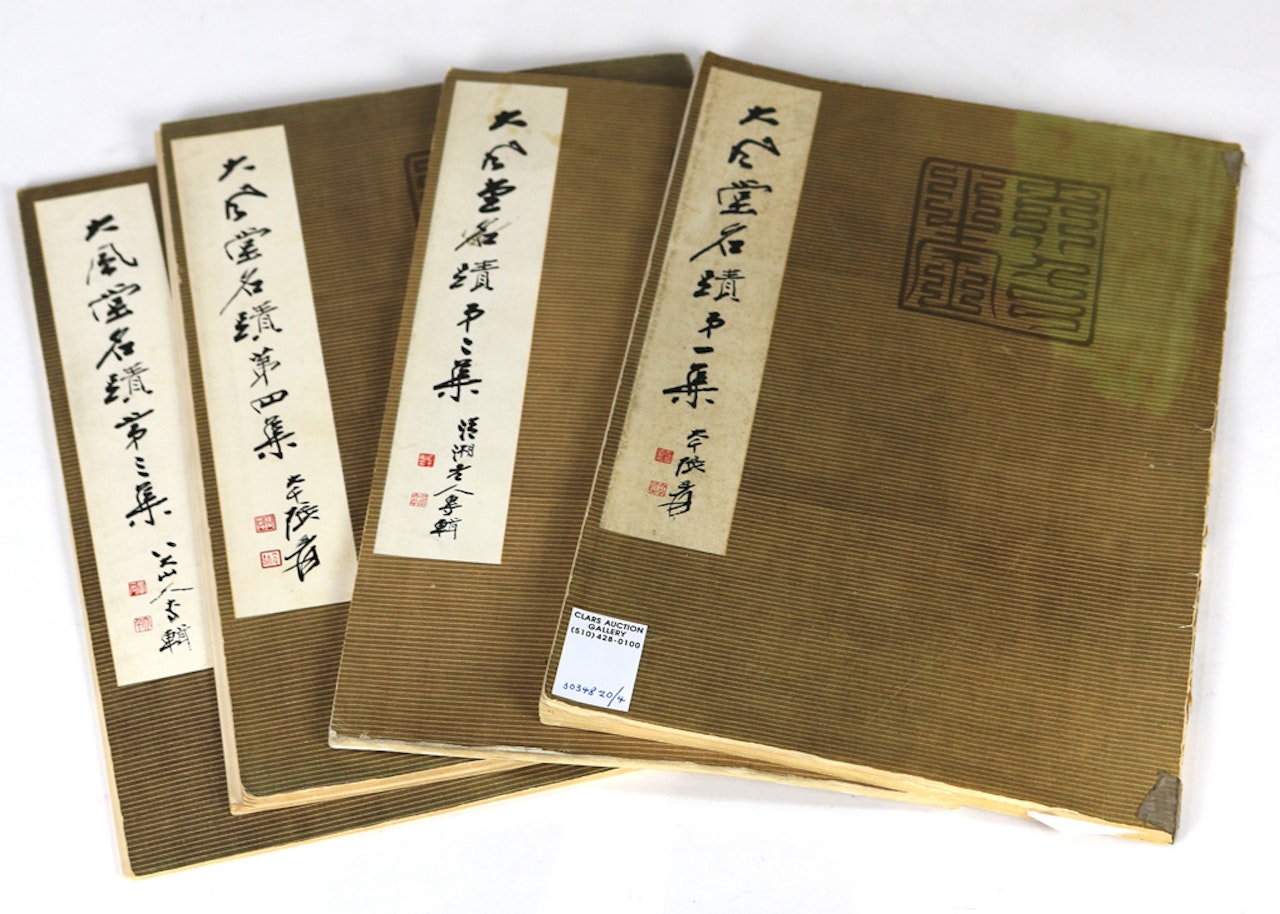 大風堂名蹟第三集
八大山人專輯
大風堂名蹟第四集
大千張爰
大風堂名蹟第二集
清湘老人專輯
大風堂名蹟第一集
大千張爰
CLARS AUCTION
GALLERY
(510) 428-0100
50348 20/4